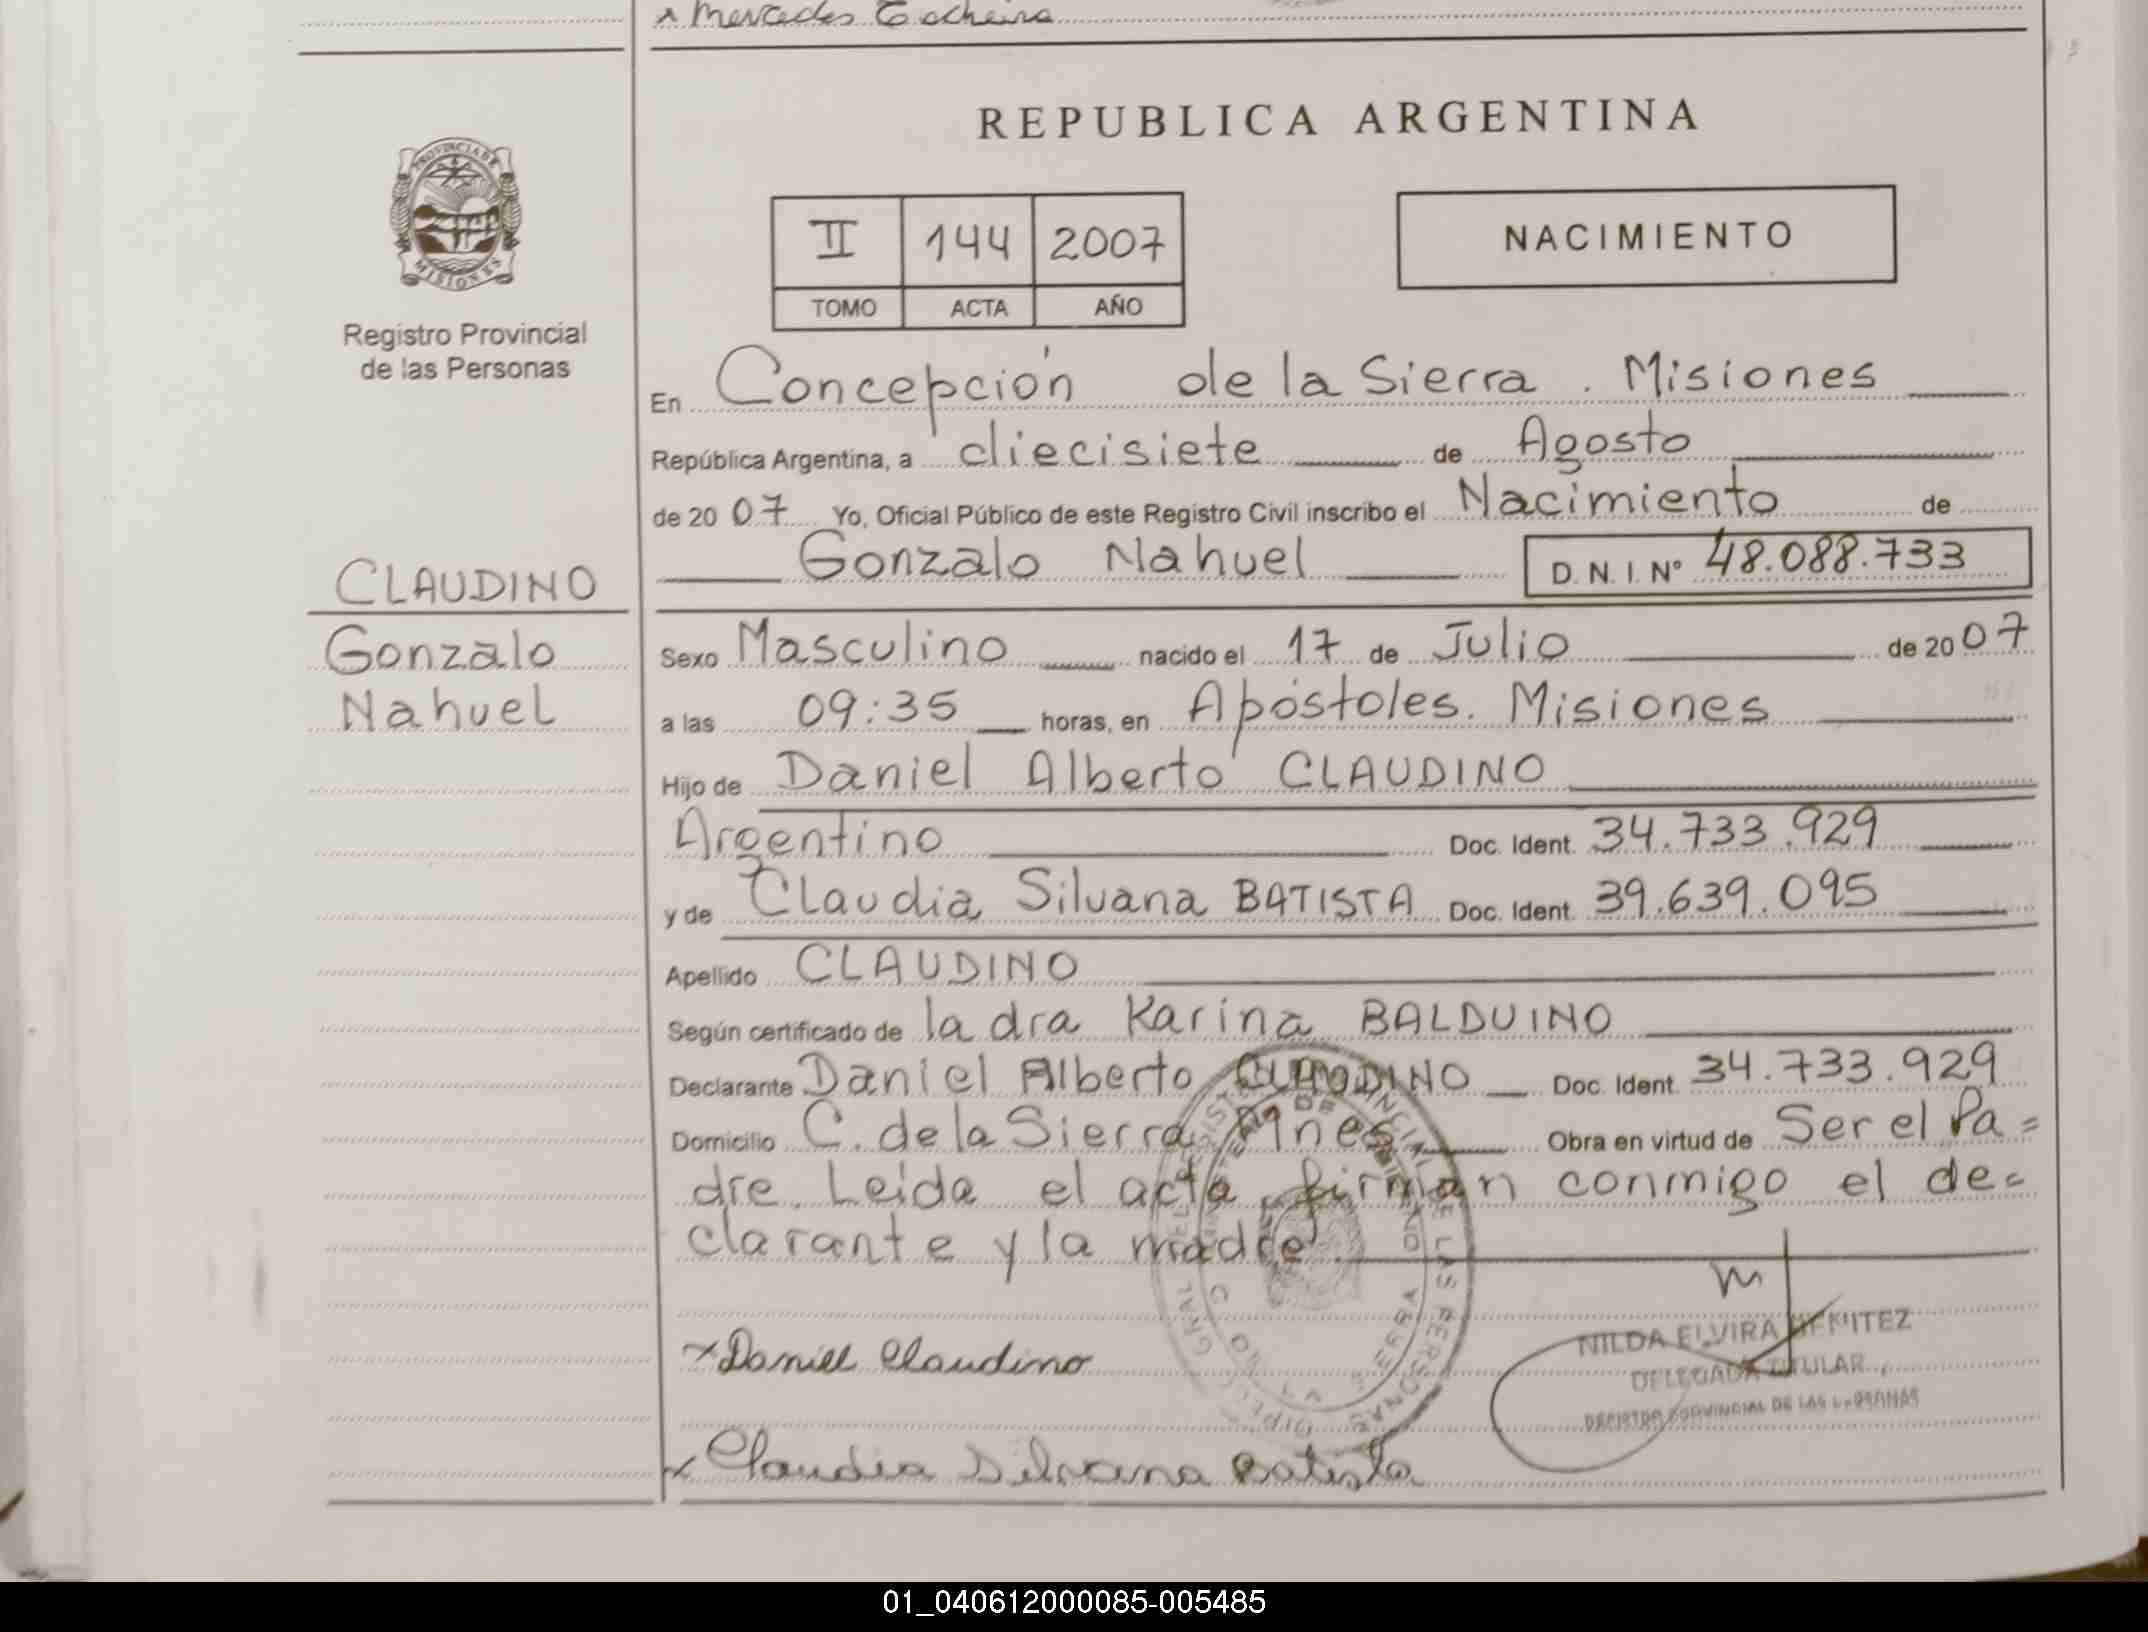 x Mercedes
REPUBLICA ARGENTINA
PROVINCIA DE
MISIONES
Registro Provincial
de las Personas
II 144 2007
TOMO ACTA AÑO
NACIMIENTO
En Concepción de la Sierra. Misiones
República Argentina, a diecisiete de Agosto
de 2007 Yo, Oficial Público de este Registro Civil inscribo el Nacimiento de
Gonzalo Nahuel D.N.I.Nº 48.088.733
CLAUDINO
Gonzalo
Nahuel
Sexo Masculino nacido el 17 de Julio de 2007
a las 09:35 horas, en Apóstoles. Misiones
Hijo de Daniel Alberto CLAUDINO
Argentino Doc. Ident. 34.733.929
y de Claudia Silvana BATISTA Doc. Ident. 39.639.095
Apellido CLAUDINO
Según certificado de la dra Karina BALDUINO
Declarante Daniel Alberto CLAUDINO Doc. Ident. 34.733.929
Domicilio C. de la Sierra Mnes Obra en virtud de Ser el Pa=
dre. Leida el acta, firman conmigo el de=
clarante y la madre.
x Daniel Claudino
NILDA ELVIRA BENITEZ
DELEGADA TITULAR
REGISTRO PROVINCIAL DE LAS PERSONAS
x Claudia Silvana Batista
01_040612000085-005485